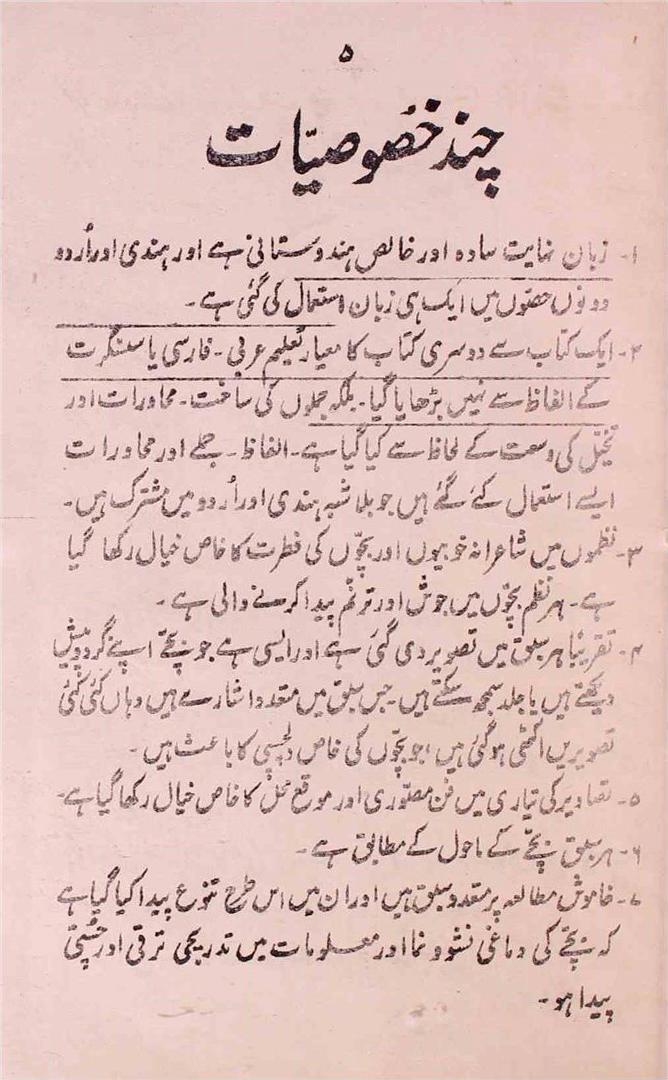 ۵
چند خصُوصیّات
۱۔ زبان نہایت سادہ اور خالص ہندوستانی ہے اور ہندی اور اُردو
دونوں حصّوں میں ایک ہی زبان استعمال کی گئی ہے۔
۲۔ ایک کتاب سے دوسری کتاب کا معیار تعلیم عربی۔ فارسی یا سنسکرت
کے الفاظ سے نہیں بڑھایا گیا۔ بلکہ جملوں کی ساخت۔ محاورات اور
تخیّل کی وسعت کے لحاظ سے کیا گیا ہے۔ الفاظ۔ جملے اور محاورات
ایسے استعمال کئے گئے ہیں جو بلا شبہ ہندی اور اُردو میں مشترک ہیں۔
۳۔ نظموں میں شاعرانہ خوبیوں اور بچّوں کی فطرت کا خاص خیال رکھا گیا
ہے۔ ہر نظم بچّوں میں جوش اور ترنّم پیدا کرنے والی ہے۔
۴۔ تقریباً ہر سبق میں تصویر دی گئی ہے اور ایسی ہے جو بچّے اپنے گردوپیش
دیکھتے ہیں یا جلد سمجھ سکتے ہیں۔ جس سبق میں متعدد اشارے ہیں وہاں کئی کئی
تصویریں اکٹھی ہو گئی ہیں، جو بچّوں کی خاص دلچسپی کا باعث ہیں۔
۵۔ تصاویر کی تیاری میں فن مصّوری اور موقع محل کا خاص خیال رکھا گیا ہے۔
۶۔ ہر سبق بچّے کے ماحول کے مطابق ہے۔
۷۔ خاموش مطالعہ پر متعدد سبق ہیں اور ان میں اس طرح تنوع پیدا کیا گیا ہے
کہ بچّے کی دماغی نشوونما اور معلومات میں تدریجی ترقی اور چُستی
پیدا ہو۔